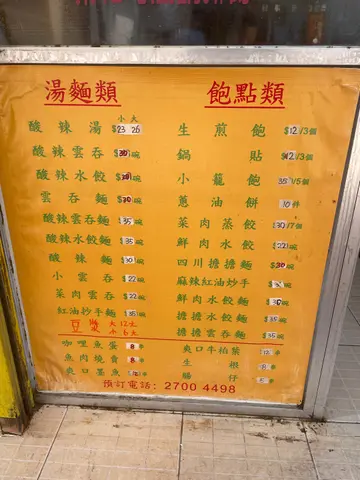 湯麵類
小 大
酸辣湯 $23 26
酸辣雲吞 $30碗
酸辣水餃 $30碗
雲吞麵 $30碗
酸辣雲吞麵 $35碗
酸辣水餃麵 $35碗
酸辣麵 $30碗
小雲吞 $22碗
菜肉雲吞 $22碗
紅油抄手麵 $35碗
豆漿 大12元
小6元
咖哩魚蛋 8
魚肉燒賣 8
爽口墨魚
飽點類
生煎飽 $12/3個
鍋貼 $12/3個
小籠飽 35/5個
蔥油餅 10件
菜肉蒸餃 $30/7個
鮮肉水餃 $22碗
四川擔擔麵 $30碗
麻辣紅油抄手
鮮肉水餃麵 $35碗
擔擔水餃麵 $35碗
擔擔雲吞麵 $35碗
爽口牛柏葉
生根
腸仔
預訂電話：2700 4498